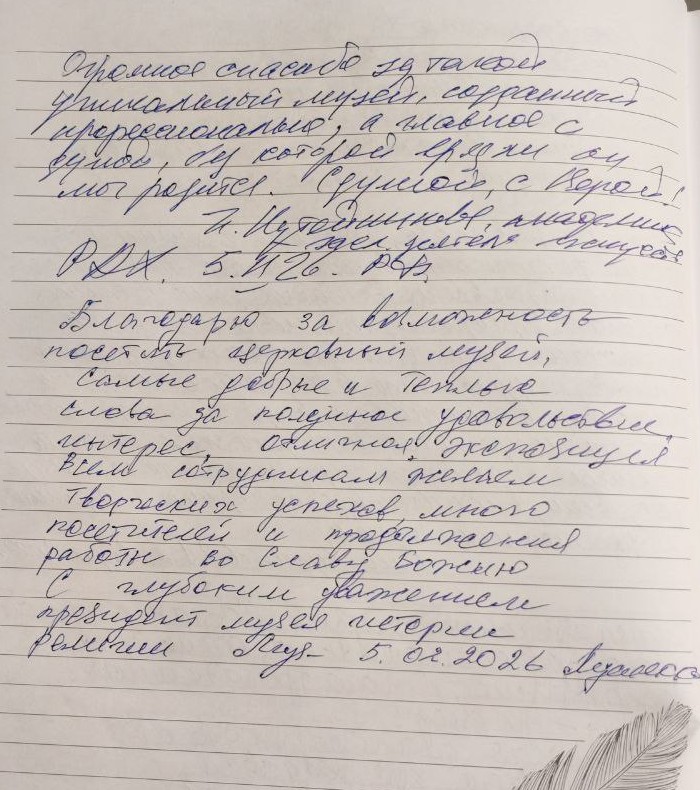 Огромное спасибо за такой
уникальный музей, созданный
профессионально, а главное с
душой, без которой врядли он
мог родится. С душой, с Верой!
академик
засл. деятель искусств
РАХ. 5.II 26. РФ.
Благодарю за возможность
посетить церковный музей,
Самые добрые и теплые
слова за полученное удовольствие,
интерес, отличная экспозиция
Всем сотрудникам желаем
творческих успехов, много
посетителей и продолжения
работы во Славу Божию
С глубоким уважением
президент музея истории
религии 5.02.2026